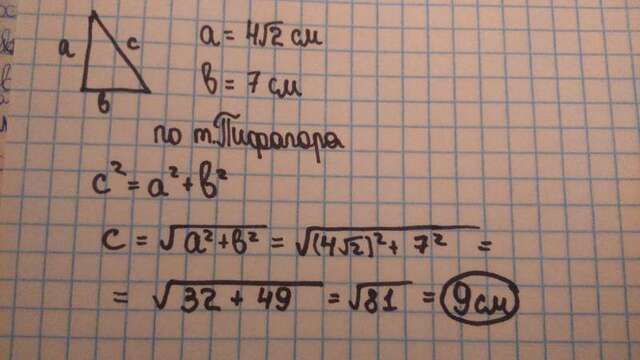 a c a = 4√2 см
b b = 7 см
по т. Пифагора
c² = a² + b²
c = √a² + b² = √(4√2)² + 7² =
= √32 + 49 = √81 = 9 см